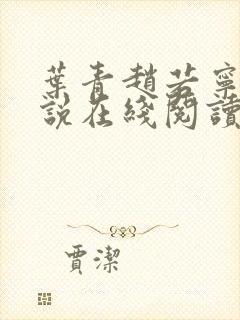 葉青趙若寧
說在綫閱讀
賈潔